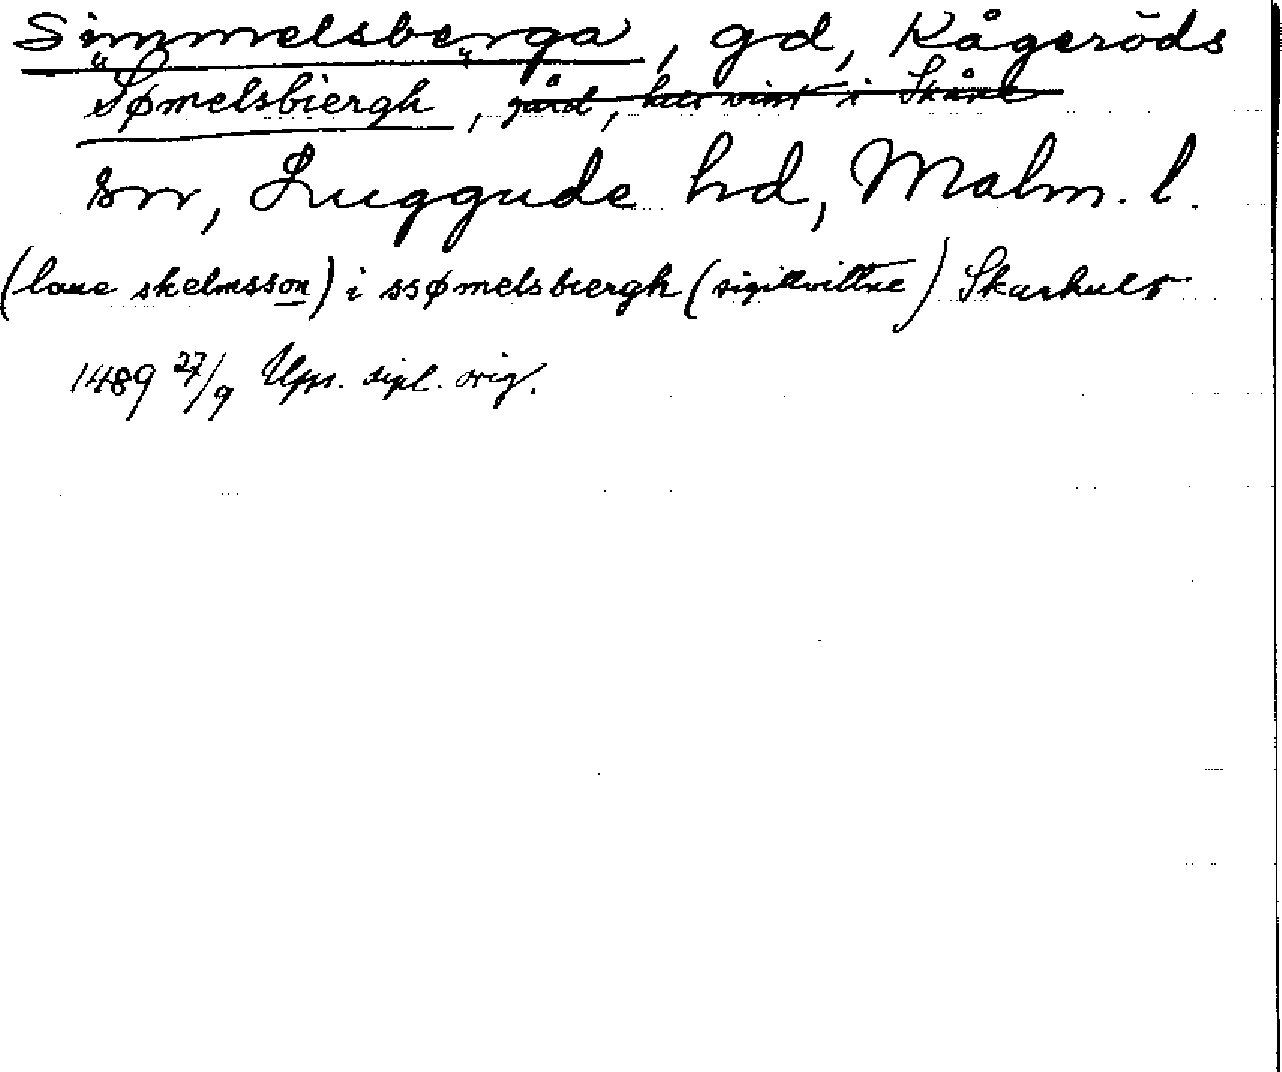 Simmelsberga, gd, Kågeröds
"Sømelsbiergh", gård, hus minst i Skåne
sn, Luggude hd, Malm. l.
(laue skelmsson) i ssømelsbiergh (sigillvittne) Skarhult
1489 27/9 Ups. dipl. orig.